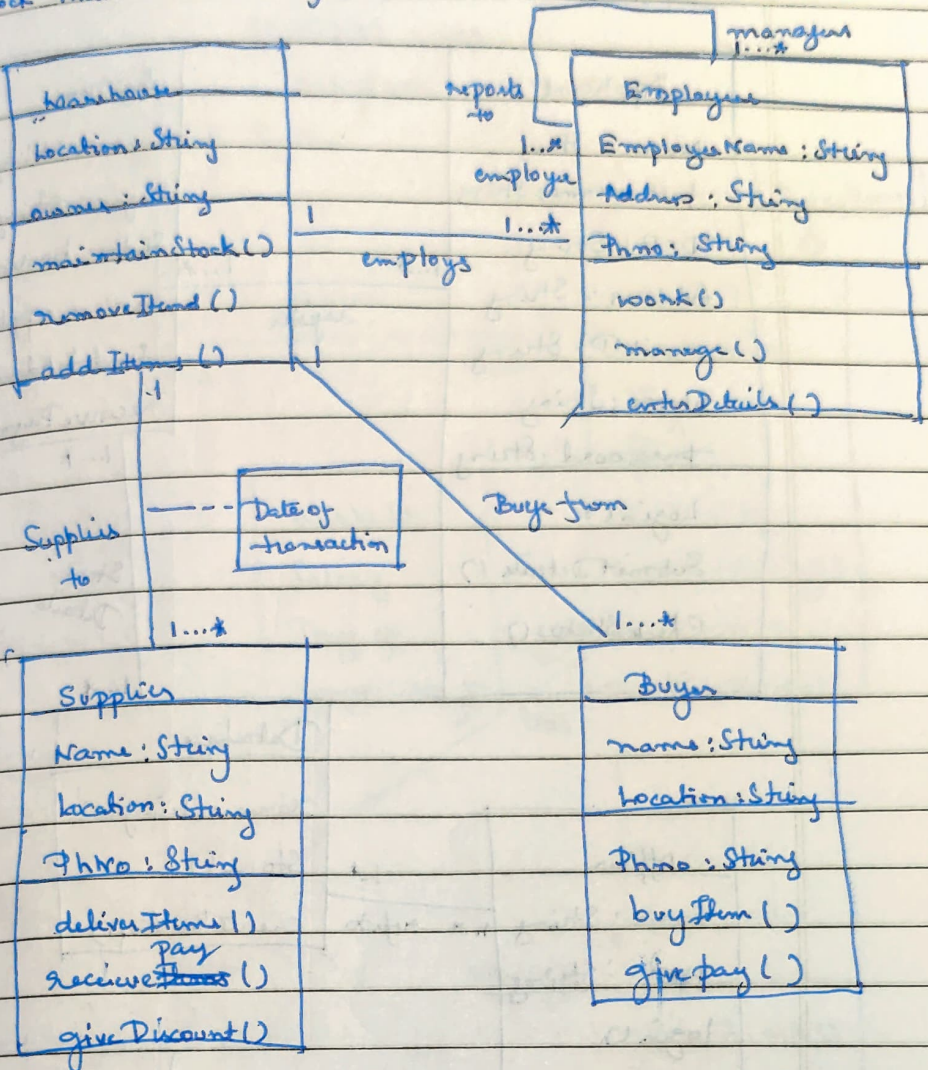 managers
1...*
Warehouse
Location: String
owner: String
maintainStock()
removeItems()
addItems()
reports
to
1..*
employee
1
1...*
employs
Employees
EmployeeName: String
Address: String
Phno: String
work()
manage()
enterDetails()
1
1
Supplies
to
Date of
transaction
Buys from
1...*
1...*
Supplier
Name: String
Location: String
PhNo: String
deliverItems()
pay
recieve ()
giveDiscount()
Buyer
name: String
Location: String
Phno: String
buyItem()
give pay()